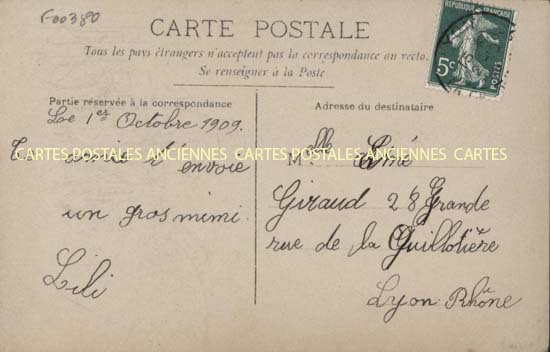 F00380
CARTE POSTALE
Tous les pays étrangers n'acceptent pas la correspondance au recto.
Se renseigner à la Poste
RÉPUBLIQUE FRANÇAISE
5c
POSTES
Partie réservée à la correspondance
Adresse du destinataire
Le 1er Octobre 1909.
Ta amie t'envoie
un gros mimi.
Lili
Mlle Aimé
Giraud 28 Grande
rue de la Guillotière
Lyon Rhône
CARTES POSTALES ANCIENNES CARTES POSTALES ANCIENNES CARTES